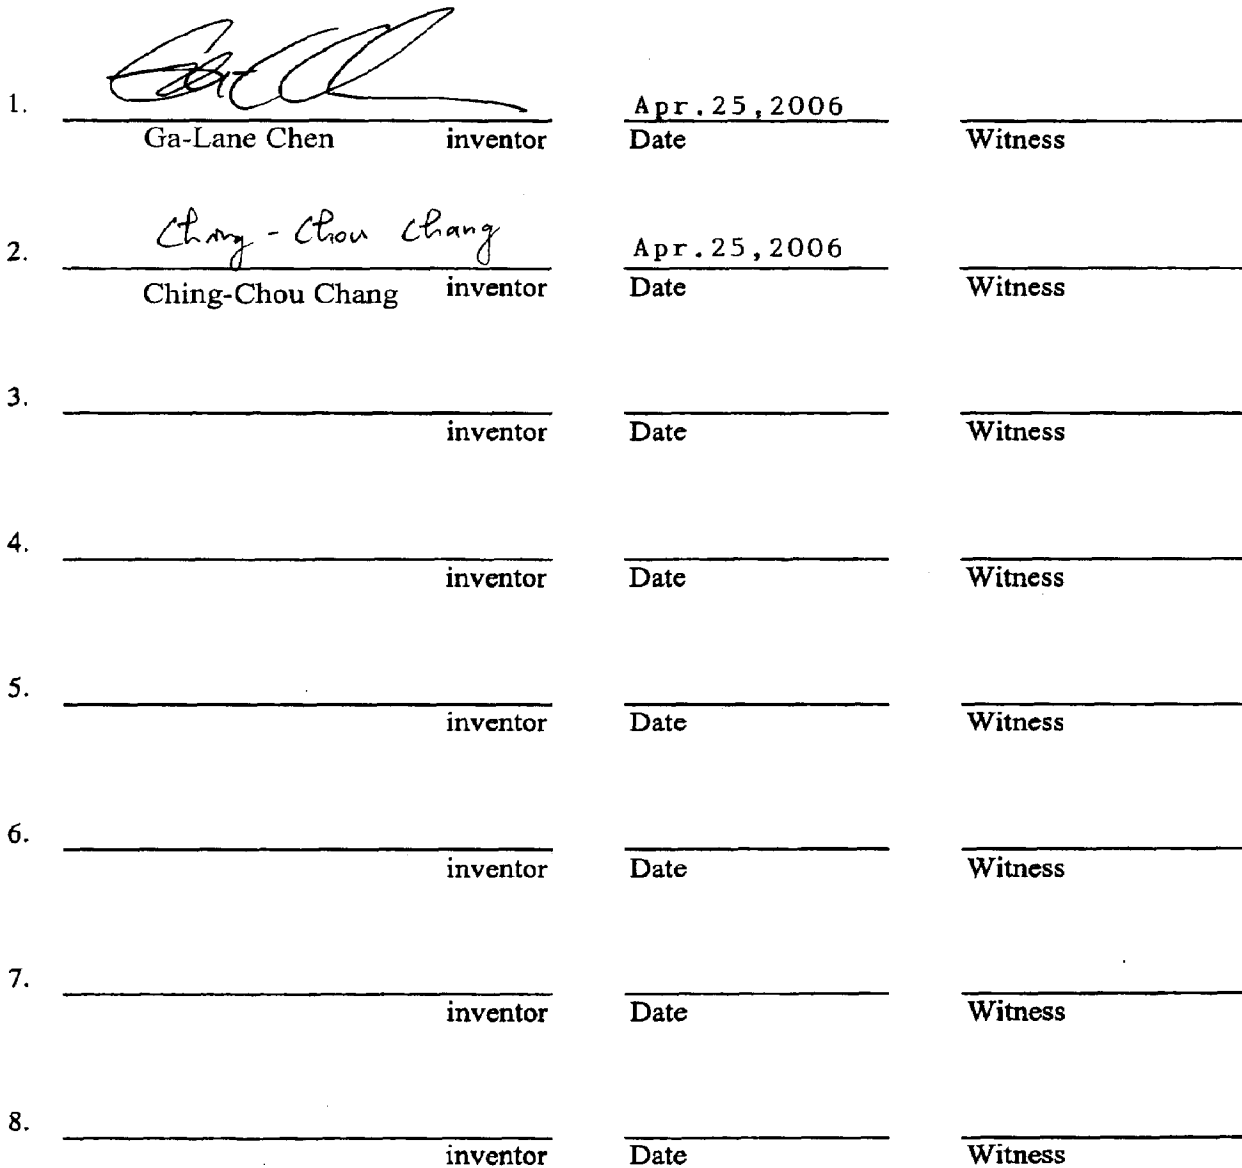 1. Apr.25,2006
Ga-Lane Chen inventor Date Witness
2. Ching-Chou Chang Apr.25,2006
Ching-Chou Chang inventor Date Witness
3.
inventor Date Witness
4.
inventor Date Witness
5.
inventor Date Witness
6.
inventor Date Witness
7.
inventor Date Witness
8.
inventor Date Witness